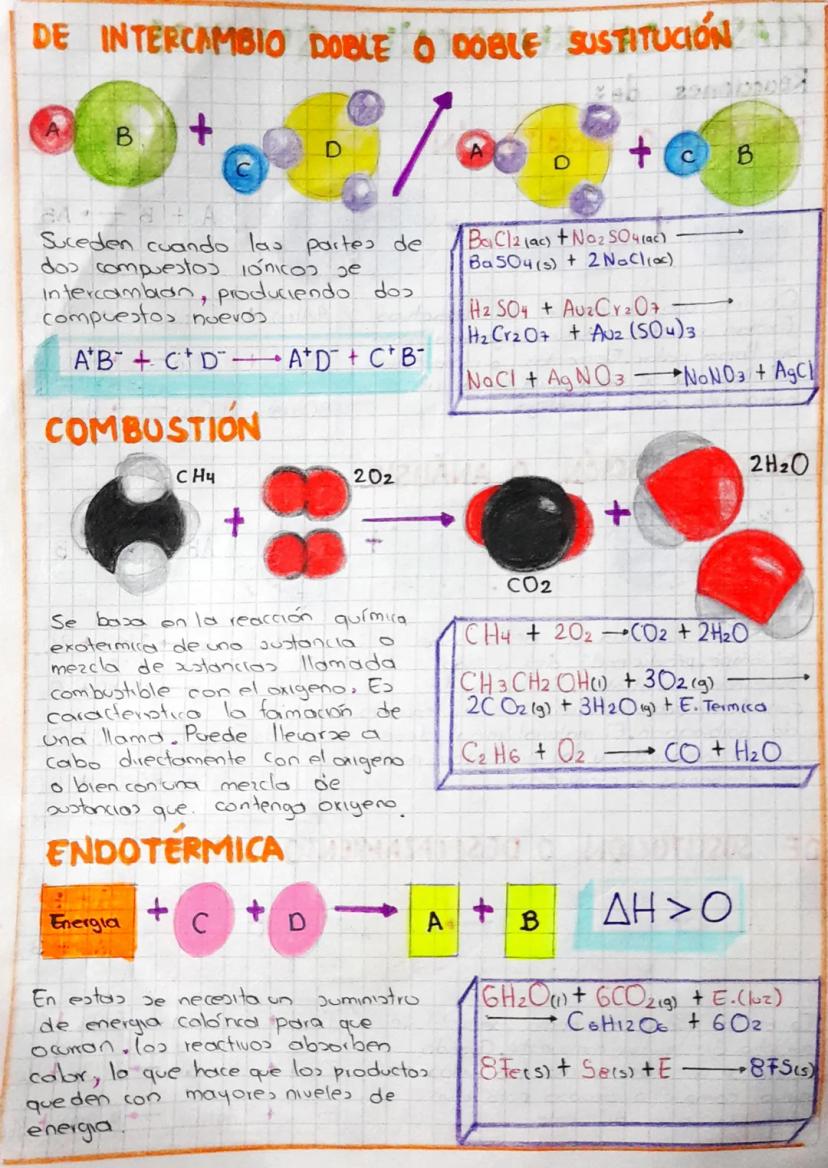 DE INTERCAMBIO DOBLE O DOBLE SUSTITUCIÓN
A B + C D A D + C B
Suceden cuando las partes de
dos compuestos iónicos se
intercambian, produciendo dos
compuestos nuevos
A⁺B⁻ + C⁺D⁻ → A⁺D⁻ + C⁺B⁻
BaCl2(ac) + Na2SO4(ac) →
BaSO4(s) + 2NaCl(ac)
H2SO4 + Au2Cr2O7 →
H2Cr2O7 + Au2(SO4)3
NaCl + AgNO3 → NaNO3 + AgCl
COMBUSTIÓN
CH4 + 2O2 → CO2 + 2H2O
Se basa en la reacción química
exotermica de una sustancia o
mezcla de sustancias llamada
combustible con el oxigeno. Es
caracteristica la formación de
una llama. Puede llevarse a
cabo directamente con el oxigeno
o bien con una mezcla de
sustancias que contenga oxigeno.
CH4 + 2O2 → CO2 + 2H2O
CH3CH2OH(l) + 3O2(g) →
2CO2(g) + 3H2O(g) + E. Termica
C2H6 + O2 → CO + H2O
ENDOTÉRMICA
Energia + C + D → A + B
ΔH > O
En estas se necesita un suministro
de energia calórica para que
ocurran. los reactivos absorben
calor, lo que hace que los productos
queden con mayores niveles de
energia.
6H2O(l) + 6CO2(g) + E.(luz)
→ C6H12O6 + 6O2
8Fe(s) + S8(s) + E → 8FS(s)